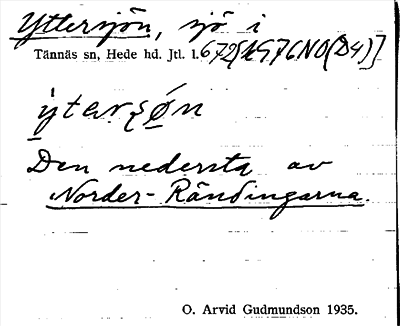 Yttersjön, sjö i
Tännäs sn, Hede hd. Jtl. l. 672[1976NO(D4)]
ÿtarʂø̠n
Den nedersta av
Norder-Rändingarna.
O. Arvid Gudmundson 1935.